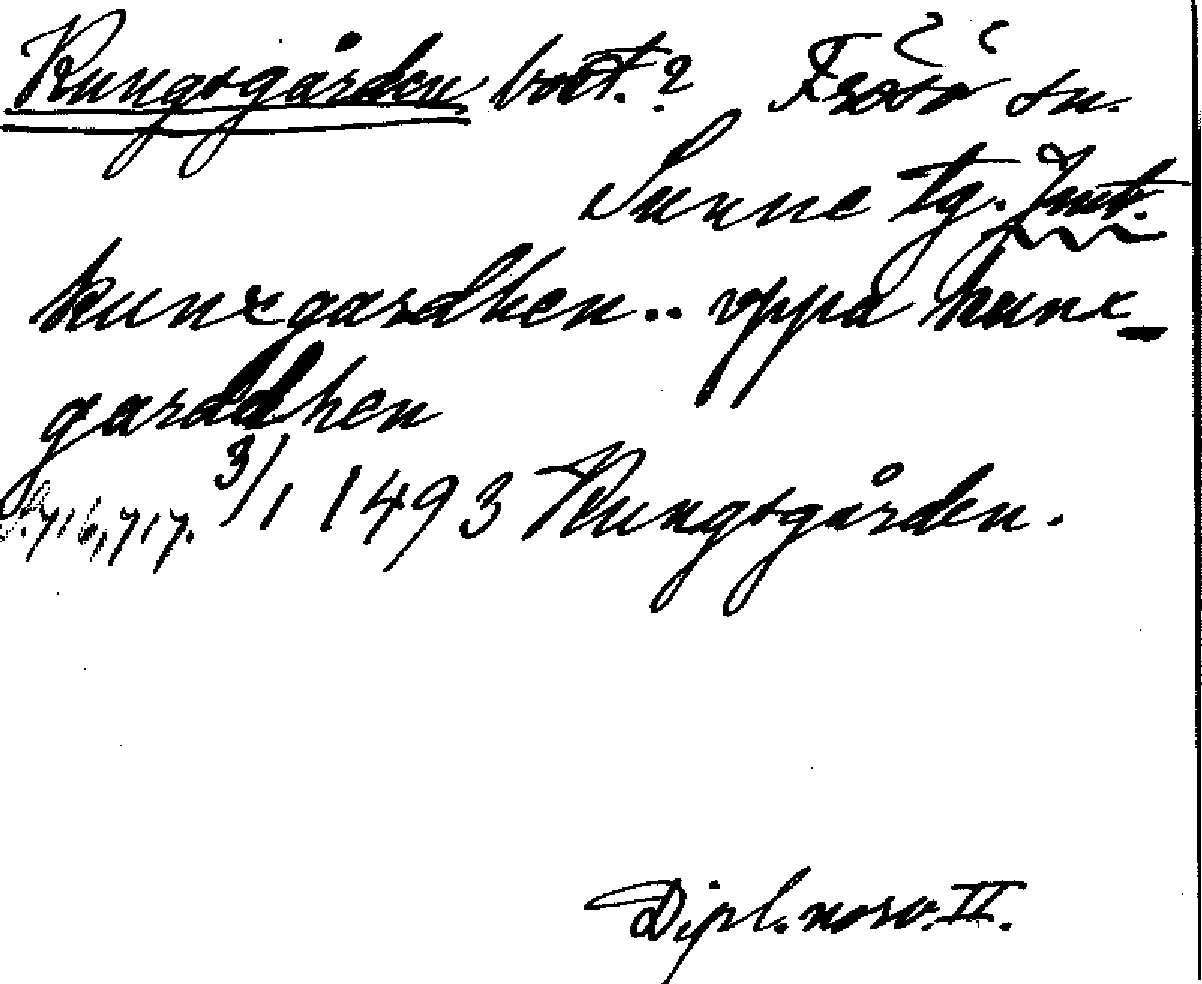 Kungsgården bort.? Frösö sn.
Sunne tg. Jmt.
kunxgardhen.. vppa kunx-
garddhen
s. 716, 717. 3/1 1493 Kungsgården.
Dipl. norv. II.